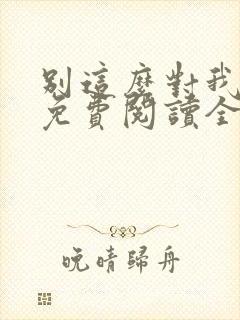 別這麼對我
免費閱讀全
晚晴歸舟